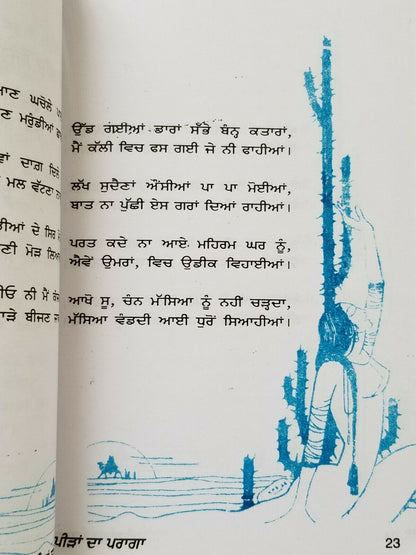 ਮਾਣ ਘਚੋਲੇ
ਣ ਮਰੁੰਡੀਆਂ
ਵਾਂ ਦਾਗ਼ ਦਿਲੇ
ਮਲ ਵੱਟਣਾ ਨਾ
ੜੀਆਂ ਦੇ ਸਿਰ
ਣੀ ਮੋੜ ਲਿਆ
ਓ ਨੀ ਮੈਂ
ਾੜੇ ਬੀਜਣ
ਉੱਡ ਗਈਆਂ ਡਾਰਾਂ ਸੱਭੇ ਬੰਨ੍ਹ ਕਤਾਰਾਂ,
ਮੈਂ ਕੱਲੀ ਵਿਚ ਫਸ ਗਈ ਜੇ ਨੀ ਫਾਹੀਆਂ।
ਲੱਖ ਸੁਦੈਣਾਂ ਔਂਸੀਆਂ ਪਾ ਪਾ ਮੋਈਆਂ,
ਬਾਤ ਨਾ ਪੁੱਛੀ ਏਸ ਗਰਾਂ ਦਿਆਂ ਰਾਹੀਆਂ।
ਪਰਤ ਕਦੇ ਨਾ ਆਏ ਮਹਿਰਮ ਘਰ ਨੂੰ,
ਐਵੇਂ ਉਮਰਾਂ, ਵਿਚ ਉਡੀਕ ਵਿਹਾਈਆਂ।
ਆਖੋ ਸੂ, ਚੰਨ ਮੱਸਿਆ ਨੂੰ ਨਹੀਂ ਚੜ੍ਹਦਾ,
ਮੱਸਿਆ ਵੰਡਦੀ ਆਈ ਧੁਰੋਂ ਸਿਆਹੀਆਂ।
ਪੀੜਾਂ ਦਾ ਪਰਾਗਾ
23